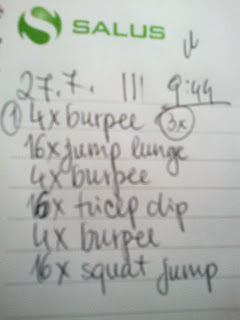 SALUS
27.7. III 9:44
① 4x burpee 3x
16x jump lunge
4x burpee
16x tricep dip
4x burpee
16x squat jump